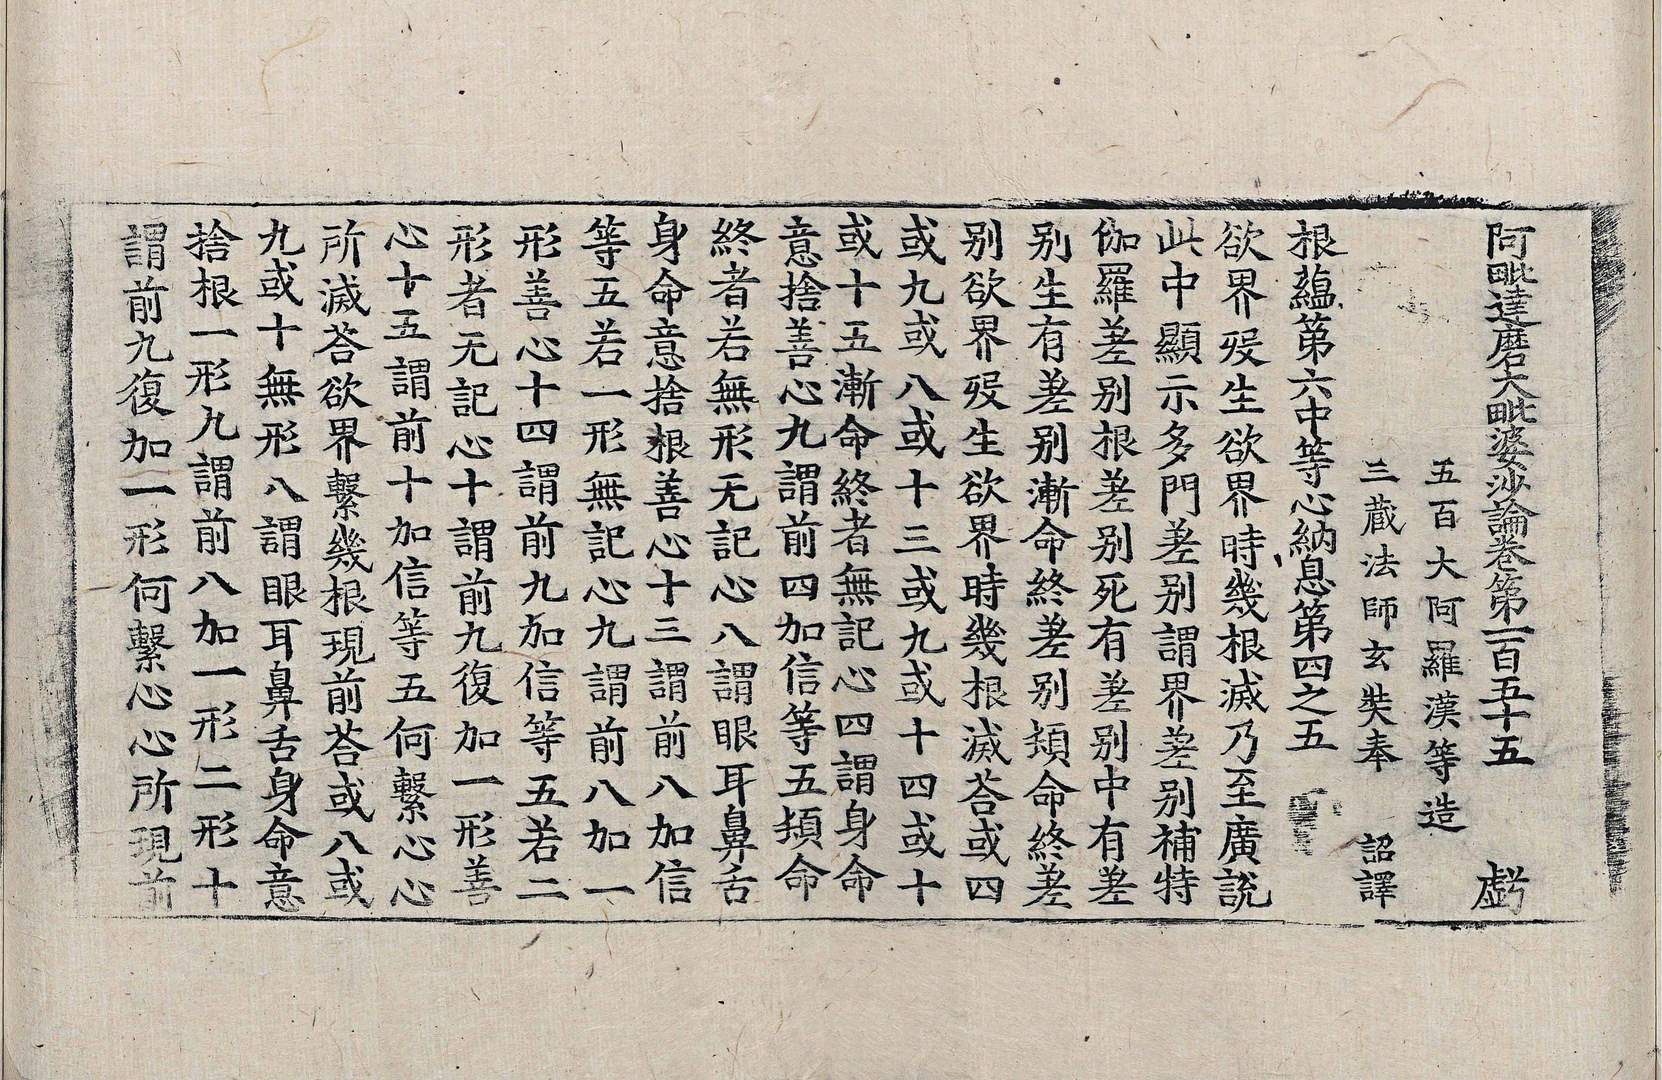 阿毗達磨大毗婆沙論卷第一百五十五 虧
五百大阿羅漢等造
三藏法師玄奘奉 詔譯
根蘊第六中等心納息第四之五
欲界歿生欲界時幾根滅乃至廣說
此中顯示多門差别謂界差别補特
伽羅差别根差别死有差别中有差
别生有差别漸命終差别頓命終差
别欲界歿生欲界時幾根滅荅或四
或九或八或十三或九或十四或十
或十五漸命終者無記心四謂身命
意捨善心九謂前四加信等五頓命
終者若無形无記心八謂眼耳鼻舌
身命意捨根善心十三謂前八加信
等五若一形無記心九謂前八加一
形善心十四謂前九加信等五若二
形者无記心十謂前九復加一形善
心十五謂前十加信等五何繫心心
所滅荅欲界繫幾根現前荅或八或
九或十無形八謂眼耳鼻舌身命意
捨根一形九謂前八加一形二形十
謂前九復加一形何繫心心所現前